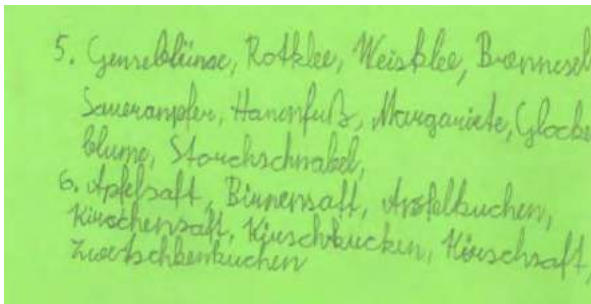 5. Genseblünse, Rotklee, Weisklee, Brennesel
Sauerampfer, Hanenfuß, Margariete, Glocke
blume, Storchschnabel,
6. Apfelsaft, Birnensaft, Apfelkuchen,
Kirschensaft, Kirschkucken, Kirschsaft,
Zwetschkenkuchen